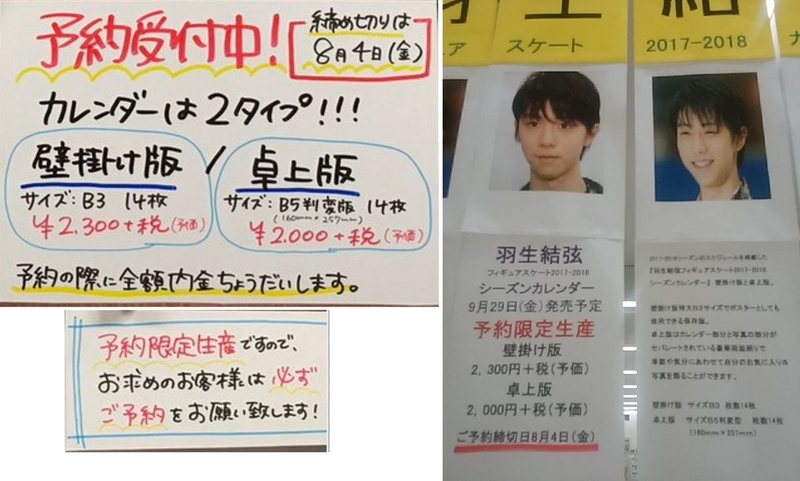 予約受付中!
締め切りは
8月4日(金)
カレンダーは2タイプ!!!
壁掛け版 / 卓上版
サイズ:B3 14枚
¥2,300+税(予価)
サイズ:B5判変版 14枚
(160mm×257mm)
¥2,000+税(予価)
予約の際に全額内金ちょうだいします。
予約限定生産ですので、
お求めのお客様は必ず
ご予約をお願い致します!
生 結
スケート
2017-2018
羽生結弦
フィギュアスケート2017-2018
シーズンカレンダー
9月29日(金)発売予定
予約限定生産
壁掛け版
2,300円+税(予価)
卓上版
2,000円+税(予価)
ご予約締切日8月4日(金)
2017-2018シーズンのスケジュールを掲載した
『羽生結弦フィギュアスケート2017-2018
シーズンカレンダー』 壁掛け版と卓上版。
壁掛け版特大B3サイズでポスターとしても
使用できる保存版。
卓上版はカレンダー部分と写真の部分が
セパレートされている豪華両面刷りで
季節や気分にあわせて自分のお気に入りの
写真を飾ることができます。
壁掛け版 サイズB3 枚数14枚
卓上版 サイズB5判変型 枚数14枚
(160mm×257mm)